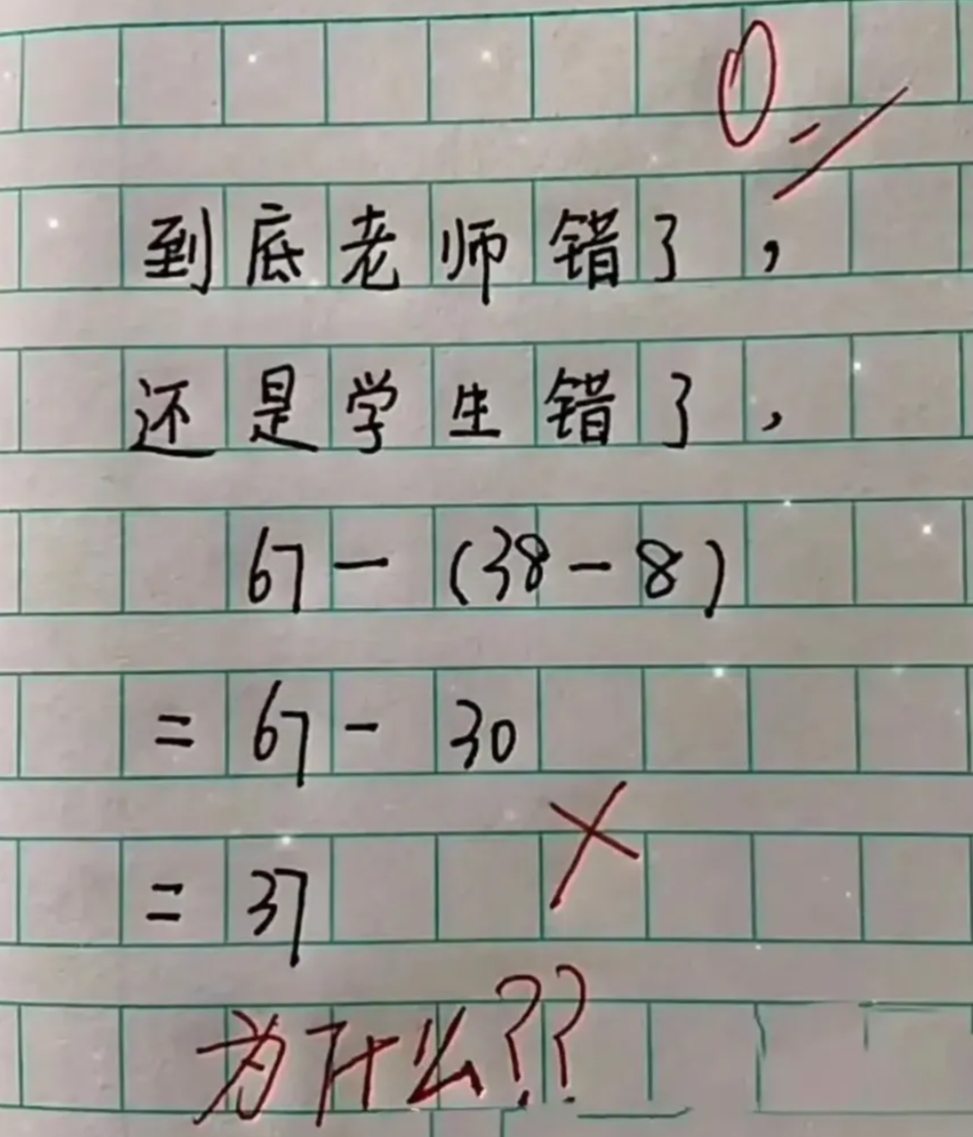 0
到底老师错了，
还是学生错了，
67－（38－8）
＝67－30
＝37
×
为什么??